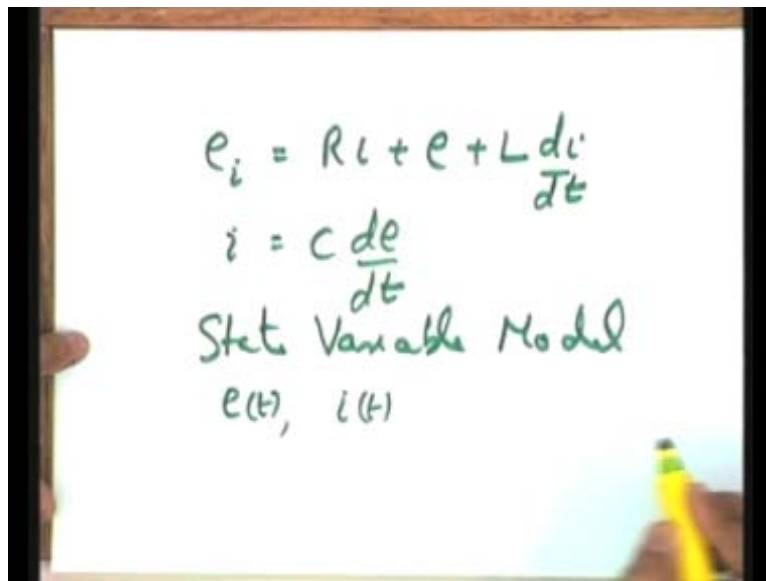 e_i = Ri + e + L di/dt
i = C de/dt
State Variable Model
e(t), i(t)